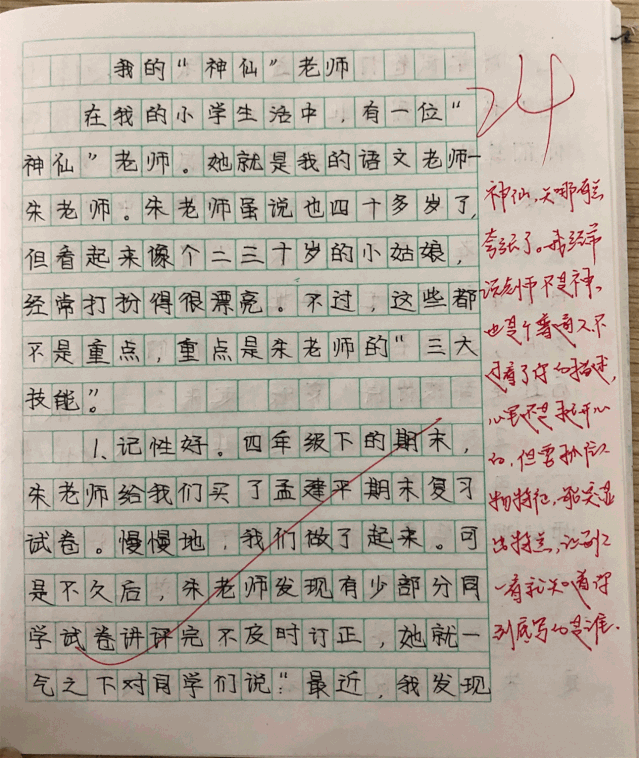 我的“神仙”老师
在我的小学生活中，有一位“
神仙”老师。她就是我的语文老师—
朱老师。朱老师虽说也四十多岁了，
但看起来像个二三十岁的小姑娘，
经常打扮得很漂亮。不过，这些都
不是重点，重点是朱老师的“三大
技能”。
1、记性好。四年级下的期末，
朱老师给我们买了孟建平期末复习
试卷。慢慢地，我们做了起来。可
是不久后，朱老师发现有少部分同
学试卷讲评完不及时订正，她就一
气之下对同学们说：“最近，我发现
24
神仙，
夸张了。我经常
说老师不是神，
也是个普通人，不
过看了你的描述，
心里还是挺开心
的，但要抓住人
物特征，能突显
出特点，让别人
一看就知道你
到底写的是谁.